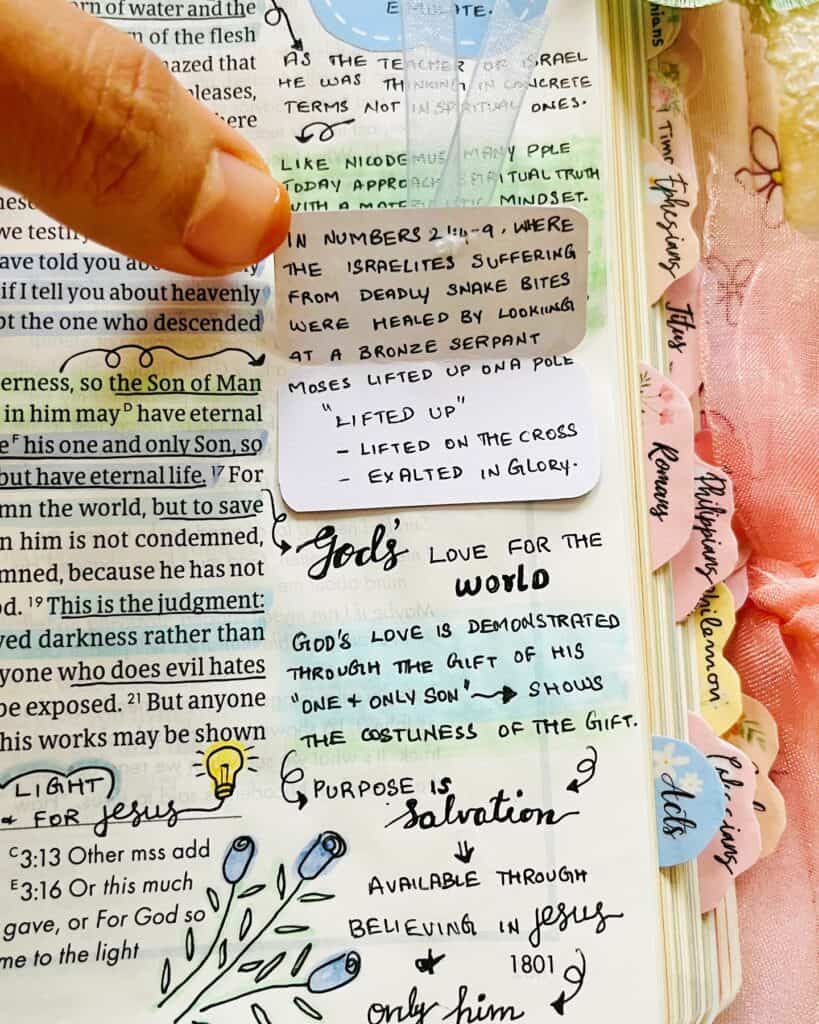 rn of water and the
n of the flesh
nazed that
pleases,
here
we testify
ave told you about
if I tell you about heavenly
pt the one who descended
erness, so the Son of Man
in him may D have eternal
e F his one and only Son, so
but have eternal life. 17 For
mn the world, but to save
n him is not condemned,
mned, because he has not
d. 19 This is the judgment:
ved darkness rather than
yone who does evil hates
be exposed. 21 But anyone
his works may be shown
LIGHT
+ FOR Jesus
C3:13 Other mss add
E3:16 Or this much
gave, or For God so
me to the light
AS THE TEACHER OF ISRAEL
HE WAS THINKING IN CONCRETE
TERMS NOT IN SPIRITUAL ONES.
LIKE NICODEMUS MANY PPLE
TODAY APPROACH SPIRITUAL TRUTH
WITH A MATERIALISTIC MINDSET.
IN NUMBERS 21:4-9, WHERE
THE ISRAELITES SUFFERING
FROM DEADLY SNAKE BITES
WERE HEALED BY LOOKING
AT A BRONZE SERPANT
MOSES LIFTED UP ON A POLE
"LIFTED UP"
- LIFTED ON THE CROSS
- EXALTED IN GLORY.
Gods' LOVE FOR THE
WORLD
GOD'S LOVE IS DEMONSTRATED
THROUGH THE GIFT OF HIS
"ONE + ONLY SON" → SHOWS
THE COSTLINESS OF THE GIFT.
PURPOSE IS
Salvation
AVAILABLE THROUGH
BELIEVING IN Jesus
1801
only him
1 Timo
Ephesians
Titus
Romans
Philippians
hilemon
Acts